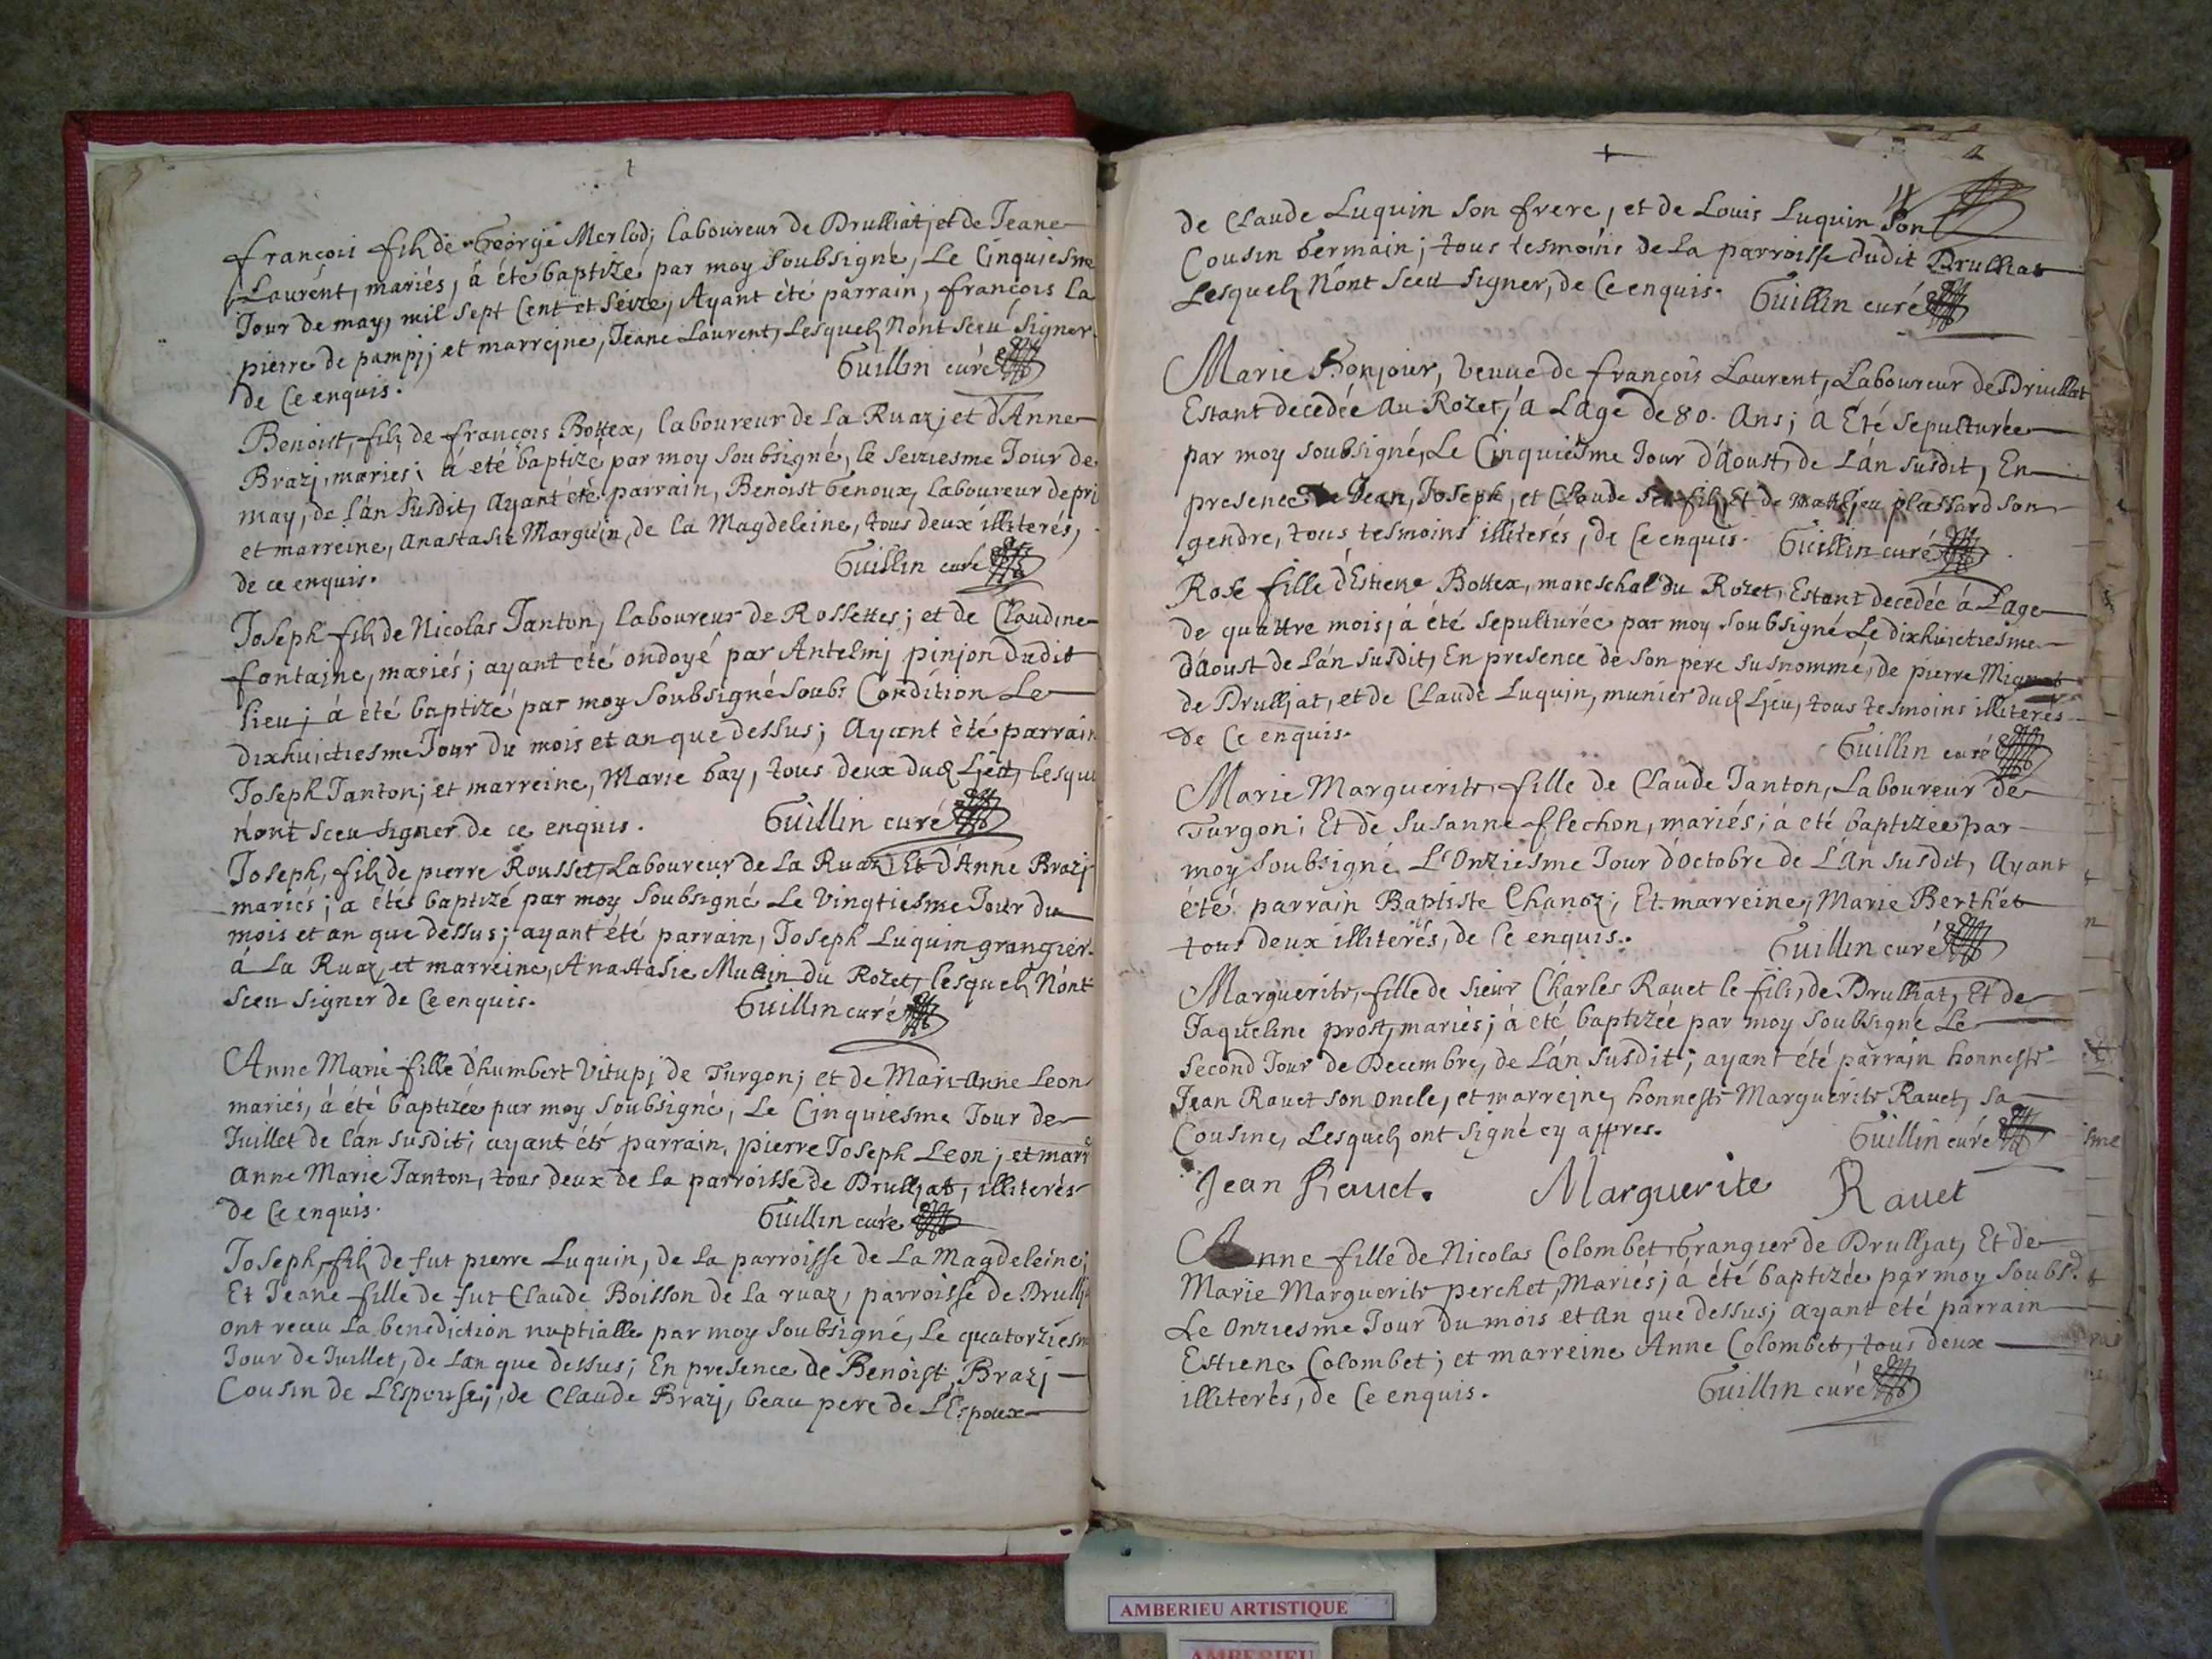 françois fils de George Merlod; laboureur de Drulliat, et de Jeane
Laurent, mariés, à été baptizé par moy soubsigné, Le Cinquiesme
Jour de may, mil sept Cent et Seize, Ayant été parrain, françois La
pierre de pampj; et marrejne, Jeane Laurent, Lesquels Nónt sceu signer
de Ce enquis. Guillin curé
Benoist, fils de françois Bottex, laboureur de La Ruaz; et d'Anne
Brazj, mariés; à eté baptizé par moy soubsigné, le seiziesme Jour de
may, de lán susdit, ayant été parrain, Benoist Genoux, laboureur de pri
et marreine, anastasie Marguin, de la Magdeleine, tous deux illiterés,
de ce enquis. Guillin curé
Joseph fils de Nicolas Janton, laboureur de Rossettes; et de Claudine
fontajne, mariés; ayant eté ondoyé par Antelmj pinjon dudit
lieu; à été baptizé par moy soubsigné soubs Condition Le
dixhuictiesme Jour du mois et an que dessus; Ayant été parrain
Joseph Janton; et marreine, Marie Gay, tous deux dud Ljeu, lesqu
nónt sceu signer de ce enquis. Guillin curé
Joseph, fils de pierre Rousset, Laboureur de La Ruaz, Et d'Anne Brazj
mariés; a étés baptizé par moy soubsigné Le Vingtiesme Jour du
mois et an que dessus; ayant été parrain, Joseph Luquin grangier
à La Ruaz, et marreine, Anastasie Mutin du Rozet, lesquels Nónt
sceu signer de Ce enquis. Guillin curé
Anne Marie fille d'humbert Vitupj de Turgon; et de Mari-Anne Leon
mariés, à été baptizée par moy soubsigné, Le Cinquiesme Jour de
Juillet de lán susdit; ayant été parrain, pierre Joseph Leon; et marr
Anne Marie Janton, tous deux de la parroisse de Drulljat, illiterés
de Ce enquis. Guillin curé
Joseph, fils de fut pierre Luquin, de la parroisse de La Magdeleine;
Et Jeane fille de fut Claude Boisson de la ruaz, parroisse de Drullj
ont receu La benediction nuptialle par moy soubsigné, le quatorziesm
Jour de Juillet, de Lan que dessus; En presence de Benoist Brazj
Cousin de L'Espouse;, de Claude Brazj, beau pere de L'Espoux
4
de Claude Luquin son frere, et de Louis Luquin son
Cousin Germain; tous tesmoins de la parroisse dudit Drulliat
Lesquels Nónt sceu signer, de Ce enquis. Guillin curé
Marie Bonjour, veuve de françois Laurent, Laboureur de Druillat
Estant decedée au Rozet, à Láge de 80. Ans; à Été sepulturée
par moy soubsigné, Le Cinquiesme Jour d'Aoust, de Lán susdit, En
presence de Jean, Joseph, et Claude ses fils, Et de Mathjeu plassard son
gendre, tous tesmoins illiterés, de Ce enquis. Guillin curé
Rose fille d'Estiene Bottex, mareschal du Rozet, Estant decedée à Láge
de quattre mois, à été sepulturée par moy soubsigné Le dixhuictiesme
dAoust de Lán susdit, En presence de son pere susnommé, de pierre
de Drulljat, et de Claude Luquin, munier dud Ljeu, tous tesmoins illiterés
de Ce enquis. Guillin curé
Marie Marguerite, fille de Claude Janton, Laboureur de
Turgon; Et de Susanne flechon, mariés; à eté baptizée par
moy soubsigné L'Onziesme Jour d'octobre de LAn susdit, ayant
été parrain Baptiste Chanoz; Et marreine, Marie Berthét
tous deux illiterés, de Ce enquis. Guillin curé
Marguerite, fille de sieur Charles Ravet le fils, de Drulliat, Et de
Jaqueline prost, mariés; à eté baptizée par moy soubsigné Le
second Jour de Decembre, de Lán susdit; ayant été parrain honneste
Jean Ravet son oncle, et marrejne, honneste Marguerite Ravet, sa
Cousine, Lesquels ont signé cy appres. Guillin curé
Jean Ravet. Marguerite Ravet
Anne fille de Nicolas Colombet, Grangier de Drulljat, Et de
Marie Marguerite perchet, Mariés; à été baptizée par moy soubs.
Le Onziesme Jour du mois et an que dessus; ayant eté parrain
Estiene Colombet; et marreine Anne Colombet, tous deux
illiterés, de Ce enquis. Guillin curé
AMBERIEU ARTISTIQUE
AMBERIEU